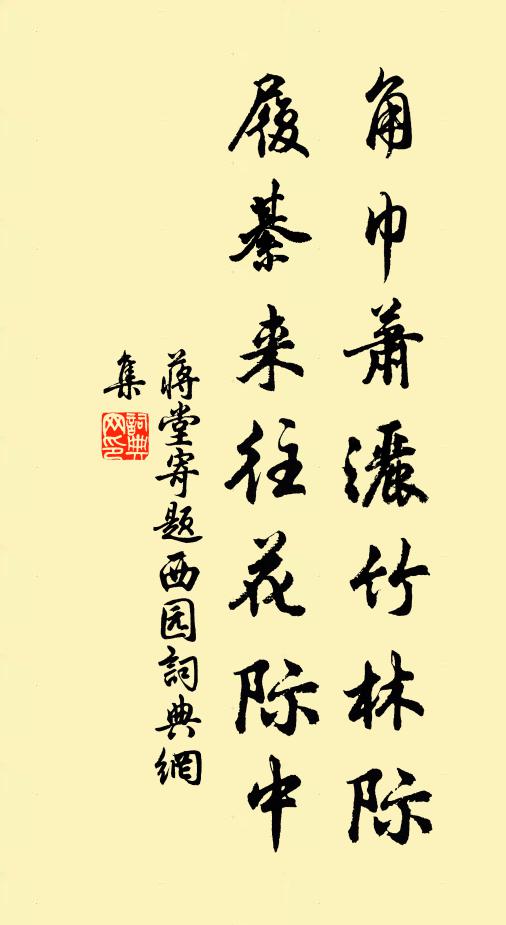 角巾萧灑竹林际
履綦来往花际中
蒋堂寄题西园詞典網
集
詞典网印